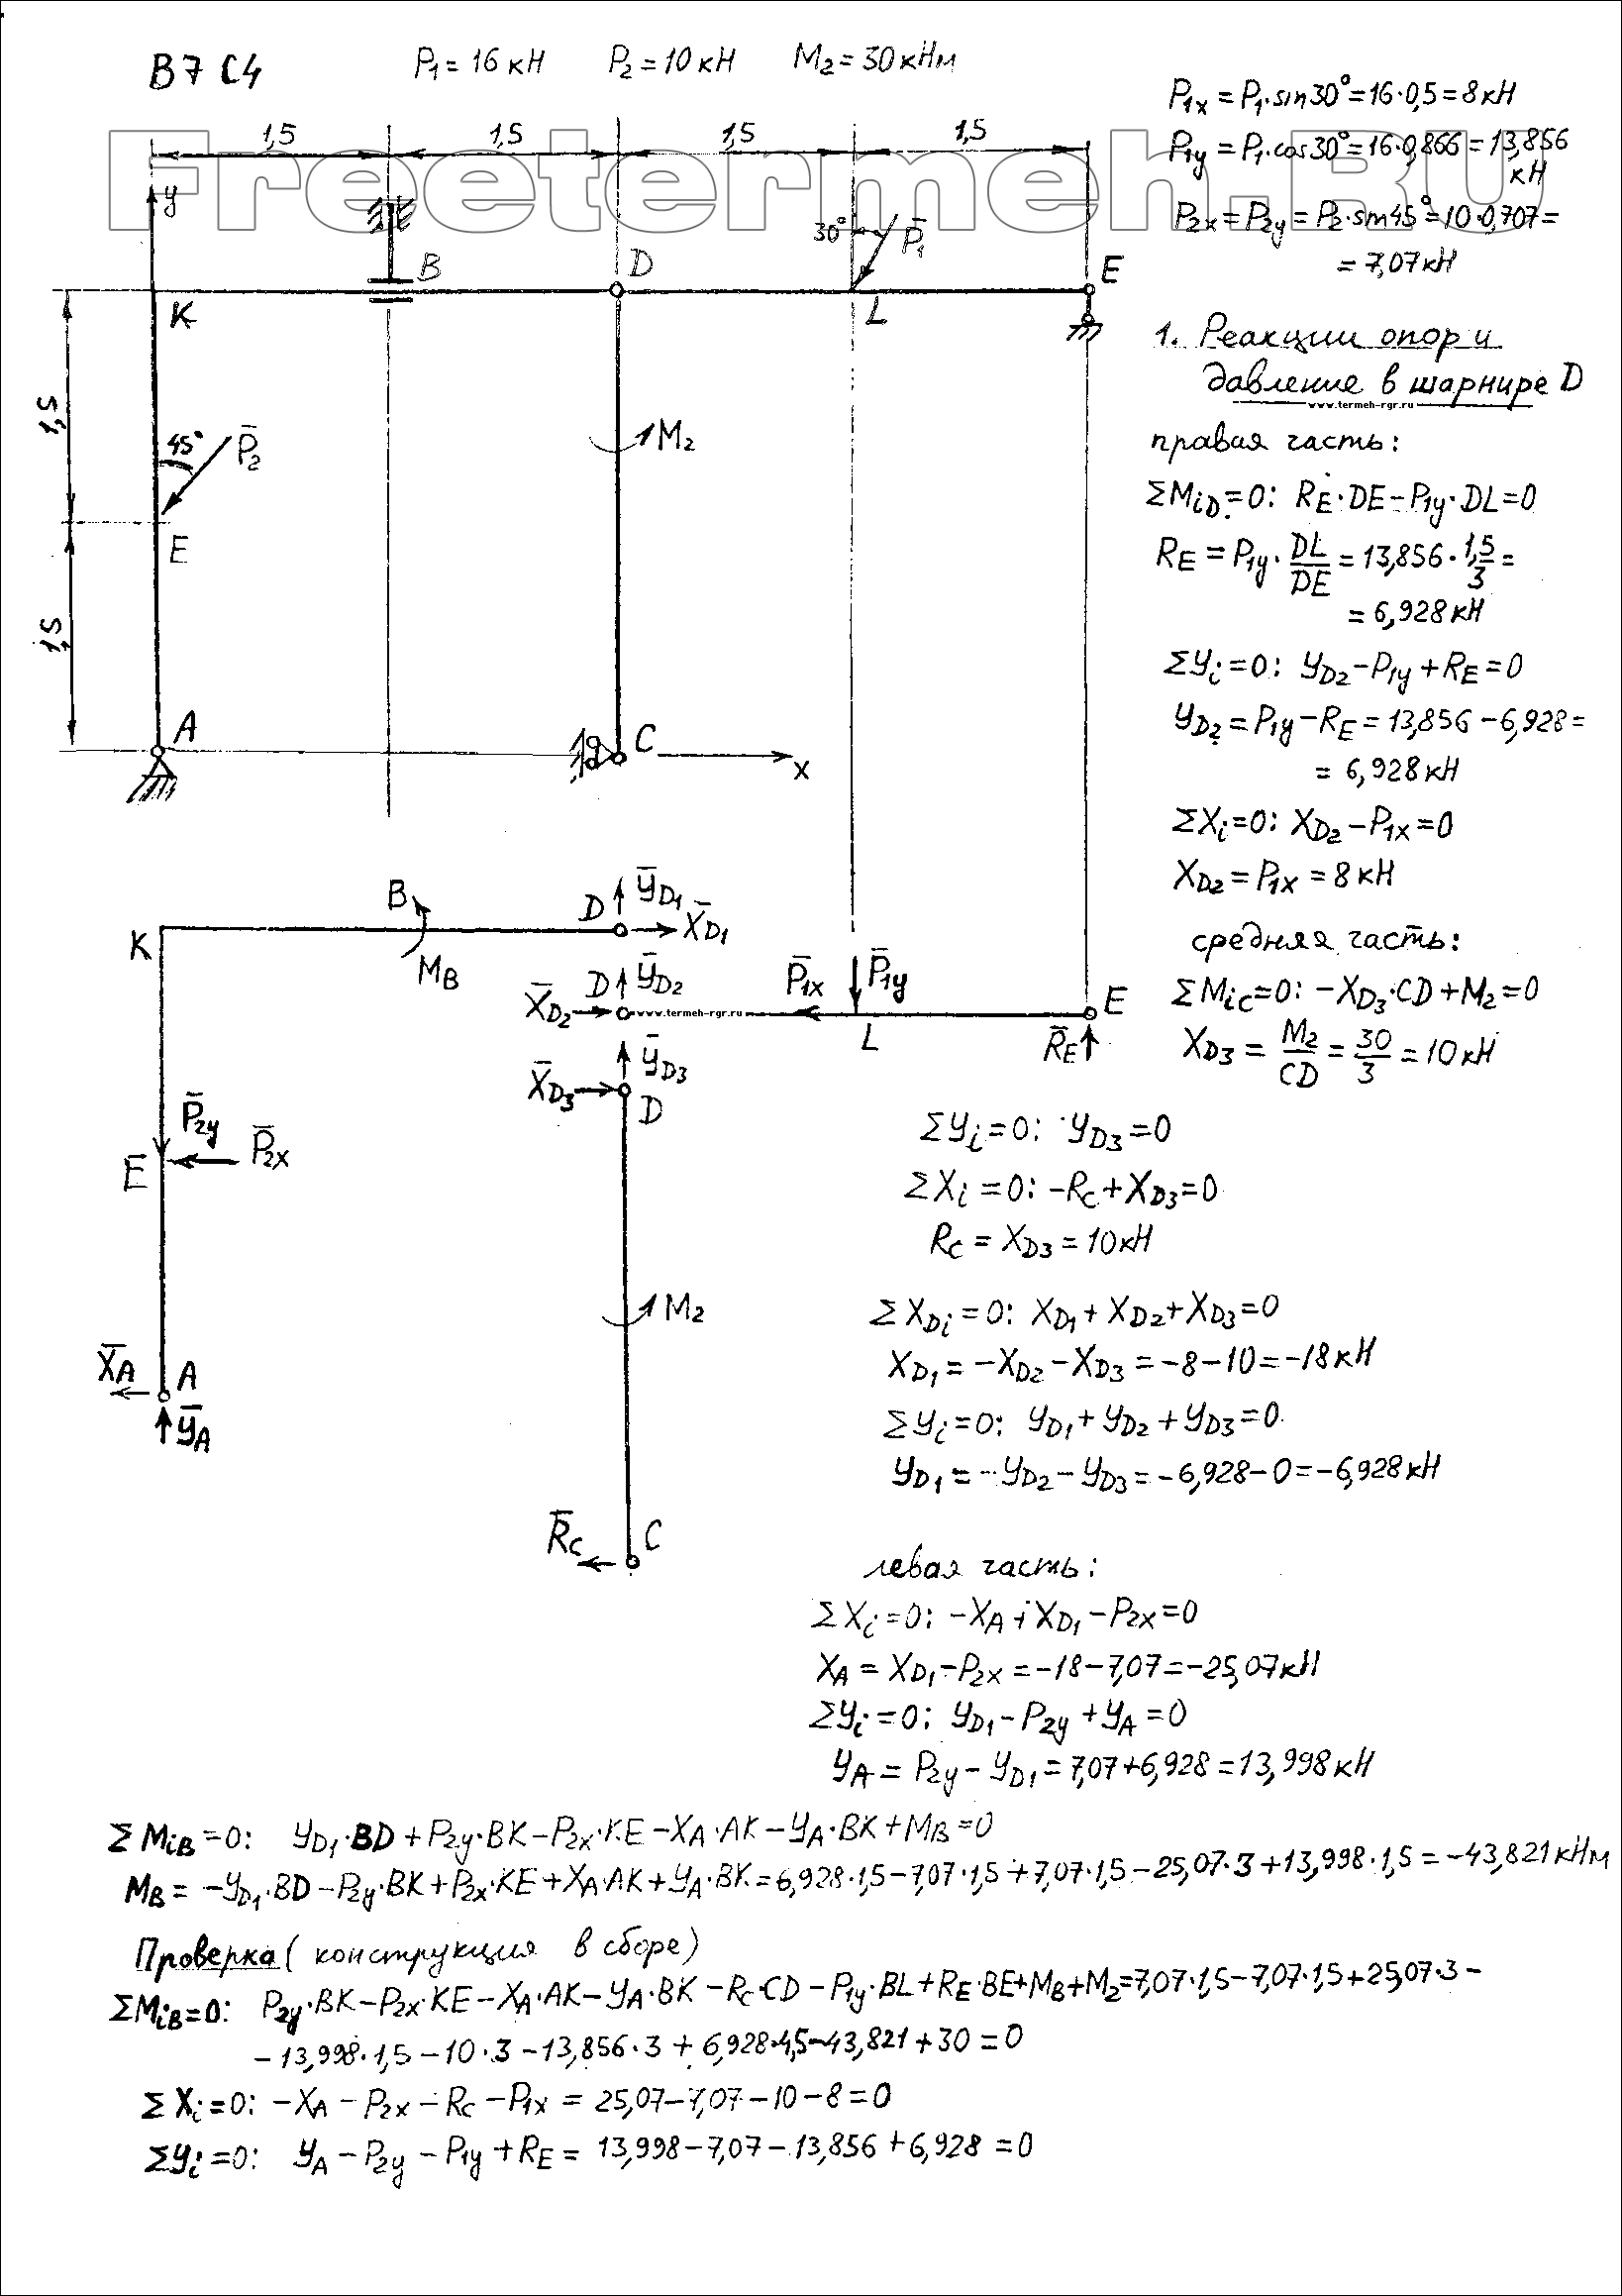 В7 С4
P₁ = 16 кН   P₂ = 10 кН   M₂ = 30 кНм
Freetermeh.RU
P₁ₓ = P₁·sin30° = 16·0,5 = 8 кН
P₁y = P₁·cos30° = 16·0,866 = 13,856
кН
P₂ₓ = P₂y = P₂·sin45° = 10·0,707 =
= 7,07 кН
1,5   1,5   1,5   1,5
y
B   D   30°   P̄₁   E
K   L
1,5
45°   P̄₂   M₂
E
1,5
A   C   x
1. Реакции опор и
давление в шарнире D
www.termeh-rgr.ru
правая часть:
ΣMiD = 0: RE·DE − P₁y·DL = 0
RE = P₁y·DL/DE = 13,856·1,5/3 =
= 6,928 кН
ΣYi = 0: YD2 − P₁y + RE = 0
YD2 = P₁y − RE = 13,856 − 6,928 =
= 6,928 кН
ΣXi = 0: XD2 − P₁x = 0
XD2 = P₁x = 8 кН
средняя часть:
ΣMiC = 0: −XD3·CD + M₂ = 0
XD3 = M₂/CD = 30/3 = 10 кН
B   D   ȲD1   X̄D1
K   MB
X̄D2   D   ȲD2   www.termeh-rgr.ru   P̄₁x   P̄₁y   E
L   R̄E
X̄D3   ȲD3   D
P̄₂y   P̄₂x
E
M₂
X̄A   A
ȲA
R̄C   C
ΣYi = 0: YD3 = 0
ΣXi = 0: −RC + XD3 = 0
RC = XD3 = 10 кН
ΣXDi = 0: XD1 + XD2 + XD3 = 0
XD1 = −XD2 − XD3 = −8 − 10 = −18 кН
ΣYi = 0: YD1 + YD2 + YD3 = 0
YD1 = −YD2 − YD3 = −6,928 − 0 = −6,928 кН
левая часть:
ΣXi = 0: −XA + XD1 − P₂x = 0
XA = XD1 − P₂x = −18 − 7,07 = −25,07 кН
ΣYi = 0: YD1 − P₂y + YA = 0
YA = P₂y − YD1 = 7,07 + 6,928 = 13,998 кН
ΣMiB = 0: YD1·BD + P₂y·BK − P₂x·KE − XA·AK − YA·BK + MB = 0
MB = −YD1·BD − P₂y·BK + P₂x·KE + XA·AK + YA·BK = 6,928·1,5 − 7,07·1,5 + 7,07·1,5 − 25,07·3 + 13,998·1,5 = −43,821 кНм
Проверка (конструкция в сборе)
ΣMiB = 0: P₂y·BK − P₂x·KE − XA·AK − YA·BK − RC·CD − P₁y·BL + RE·BE + MB + M₂ = 7,07·1,5 − 7,07·1,5 + 25,07·3 −
− 13,998·1,5 − 10·3 − 13,856·3 + 6,928·4,5 − 43,821 + 30 = 0
ΣXi = 0: −XA − P₂x − RC − P₁x = 25,07 − 7,07 − 10 − 8 = 0
ΣYi = 0: YA − P₂y − P₁y + RE = 13,998 − 7,07 − 13,856 + 6,928 = 0